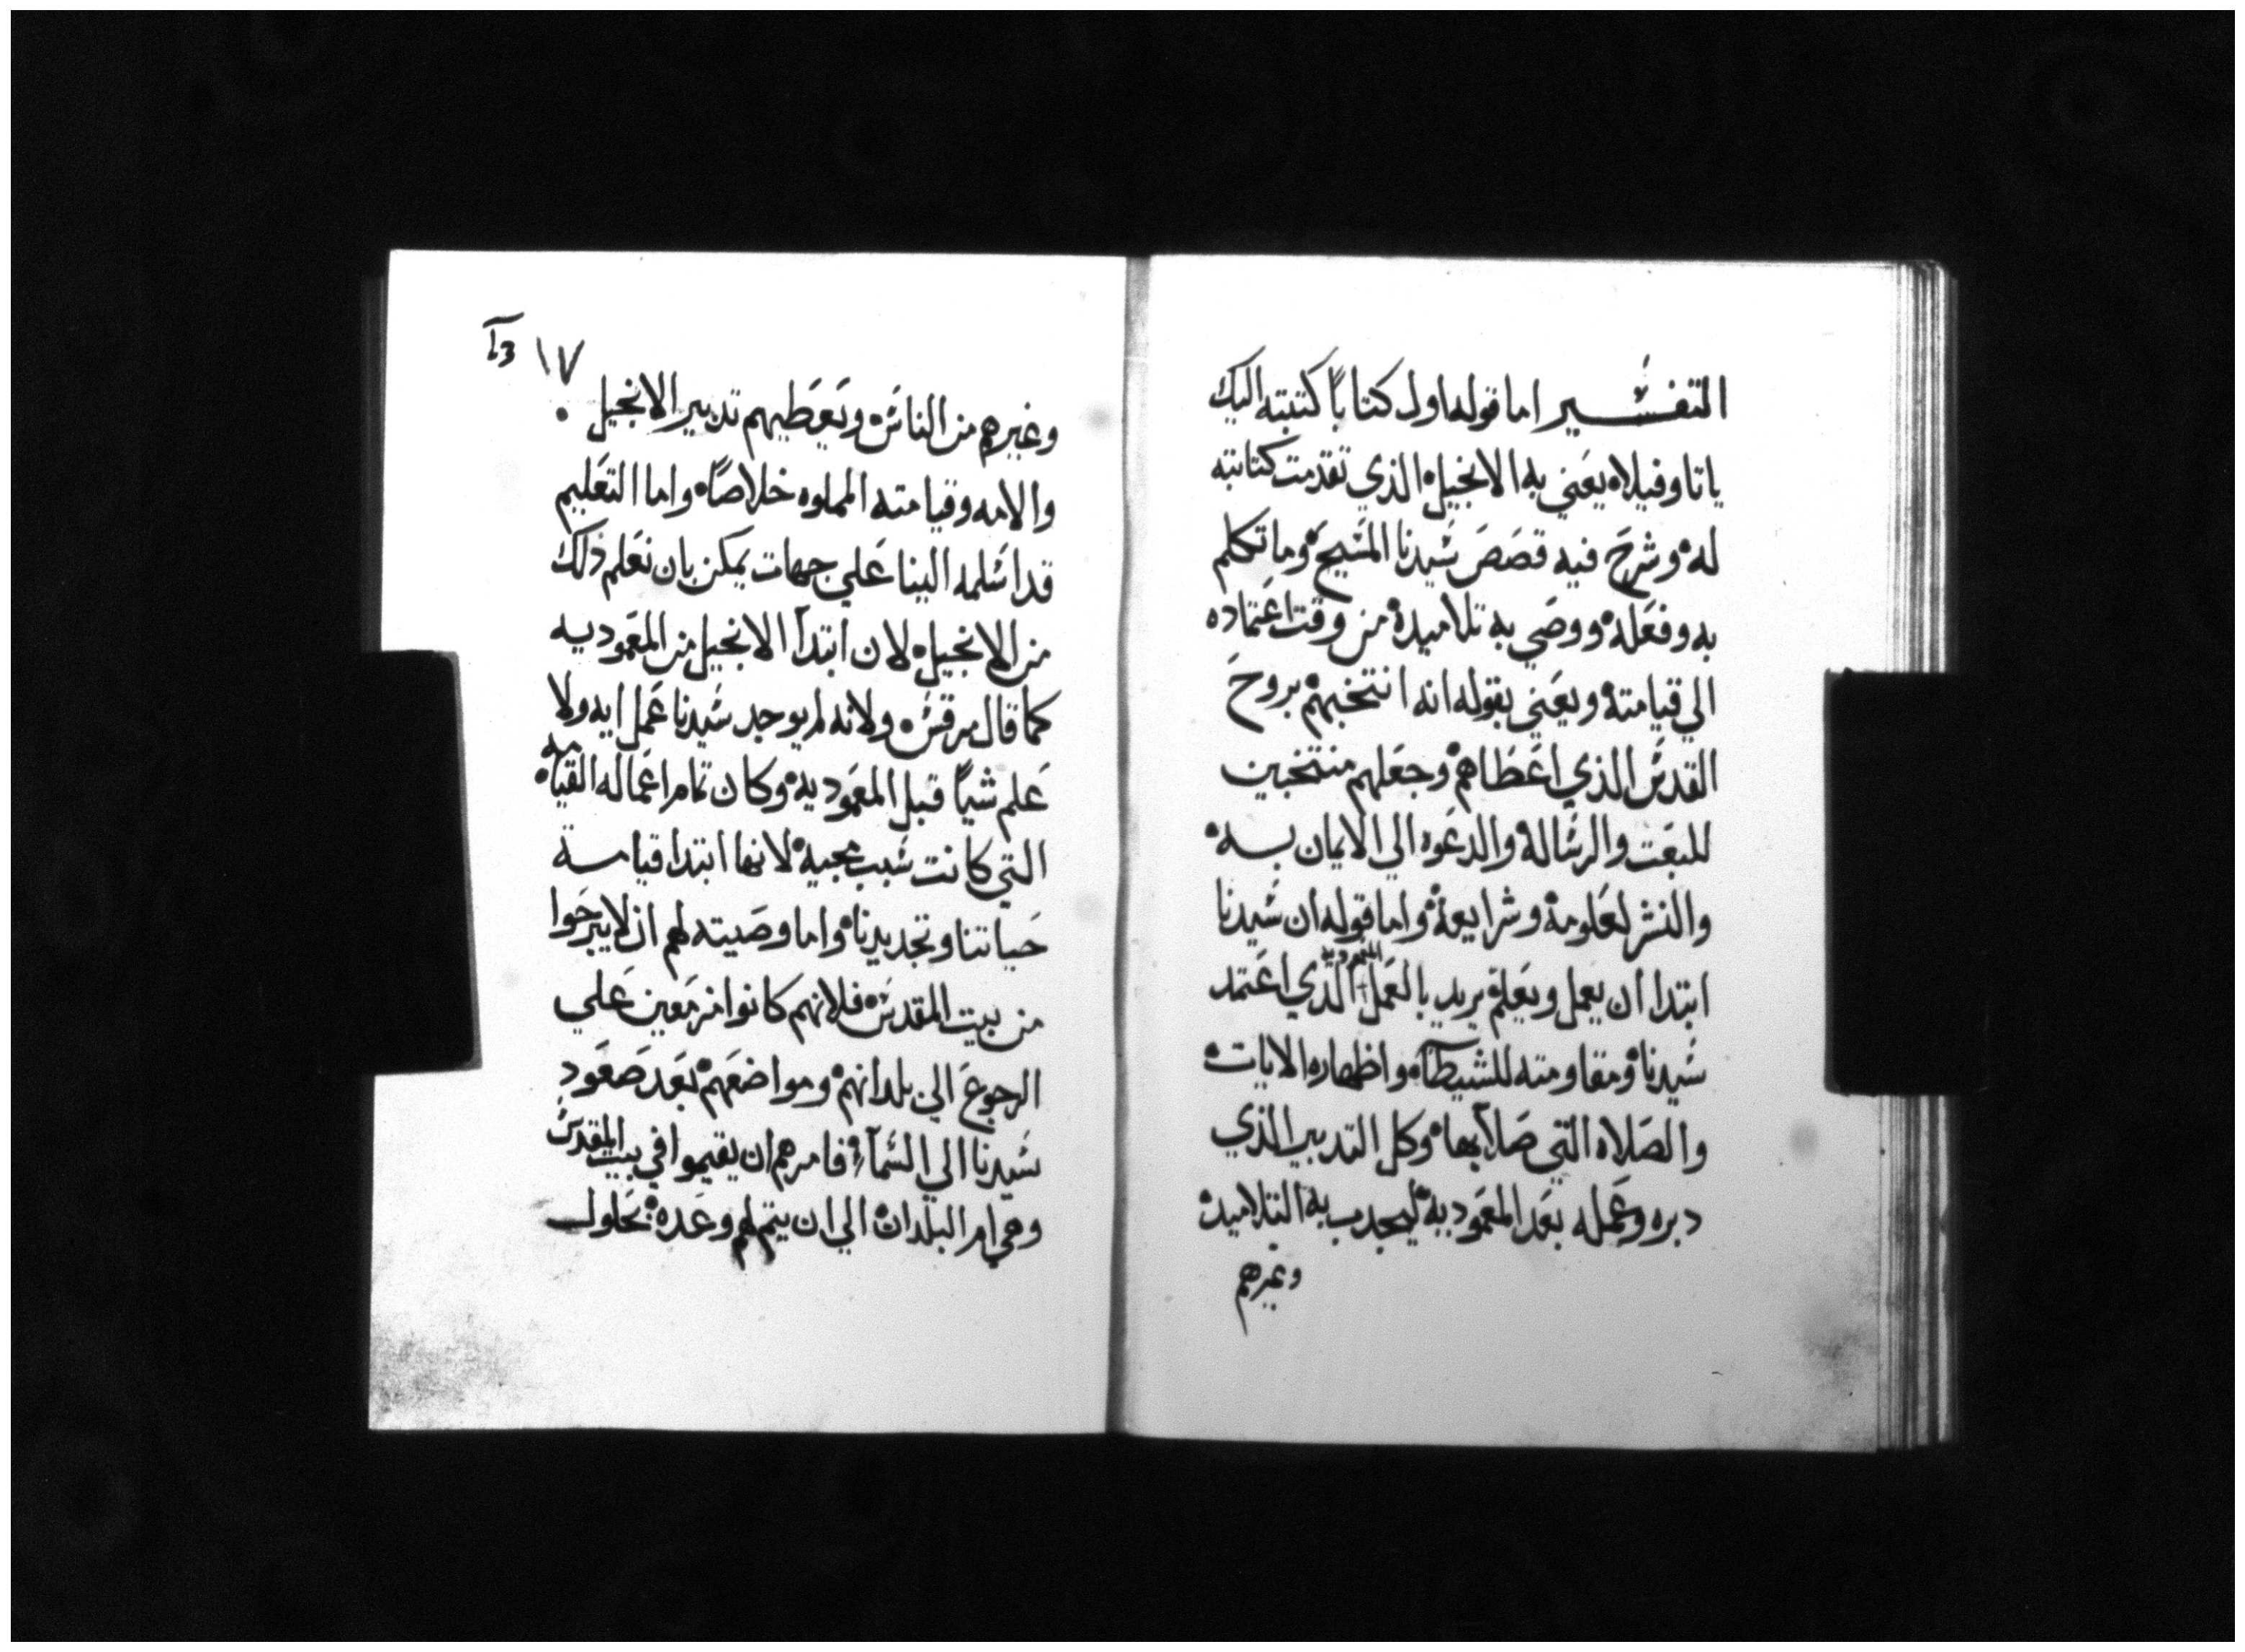 التفسير اما قوله اول كتاباً كتبته اليك
ياتاوفيلاه يعني به الانجيل الذي تقدمت كتابته
له وشرح فيه قصص سيدنا المسيح وما تكلم
به وفعله ووصي به تلاميده من وقت اعتماده
الي قيامته ويعني بقوله انه انتخبهم بروح
القدس الذي اعطاهم وجعلهم منتخبين
للبعت والرساله والدعوه الي الايمان به
والنشر لعلومه وشرايعه واما قوله ان سيدنا
ابتدا ان يعمل ويعلم يريد بالعمل المعموديه الذي اعتمد
سيدنا ومقاومته للشيطان واظهاره الايات
والصلاه التي صلا بها وكل التدبير الذي
دبره وعمله بعد المعموديه ليجدب به التلاميد
وغيرهم
١٧
وغيرهم من الناس ويعطيهم تدبير الانجيل
والامه وقيامته المملوه خلاصاً واما التعليم
قد اسلمه الينا علي جهات يمكن بان نعلم ذلك
من الانجيل لان ابتدآ الانجيل من المعموديه
كما قال مرقس ولانه لم يوجد سيدنا عمل ايه ولا
علم شياً قبل المعموديه وكان تمام اعماله القيامه
التي كانت سبب مجيه لانها ابتدا قيامة
حياتنا وتجديدنا واما وصيته لهم ان لا يبرحوا
من بيت المقدس فلانهم كانوا مزمعين علي
الرجوع الي بلدانهم ومواضعهم بعد صعود
سيدنا الي السمآء فامرهم ان يقيموا في بيت المقدس
وهي ام البلدان الي ان يتم لهم وعده بحلول